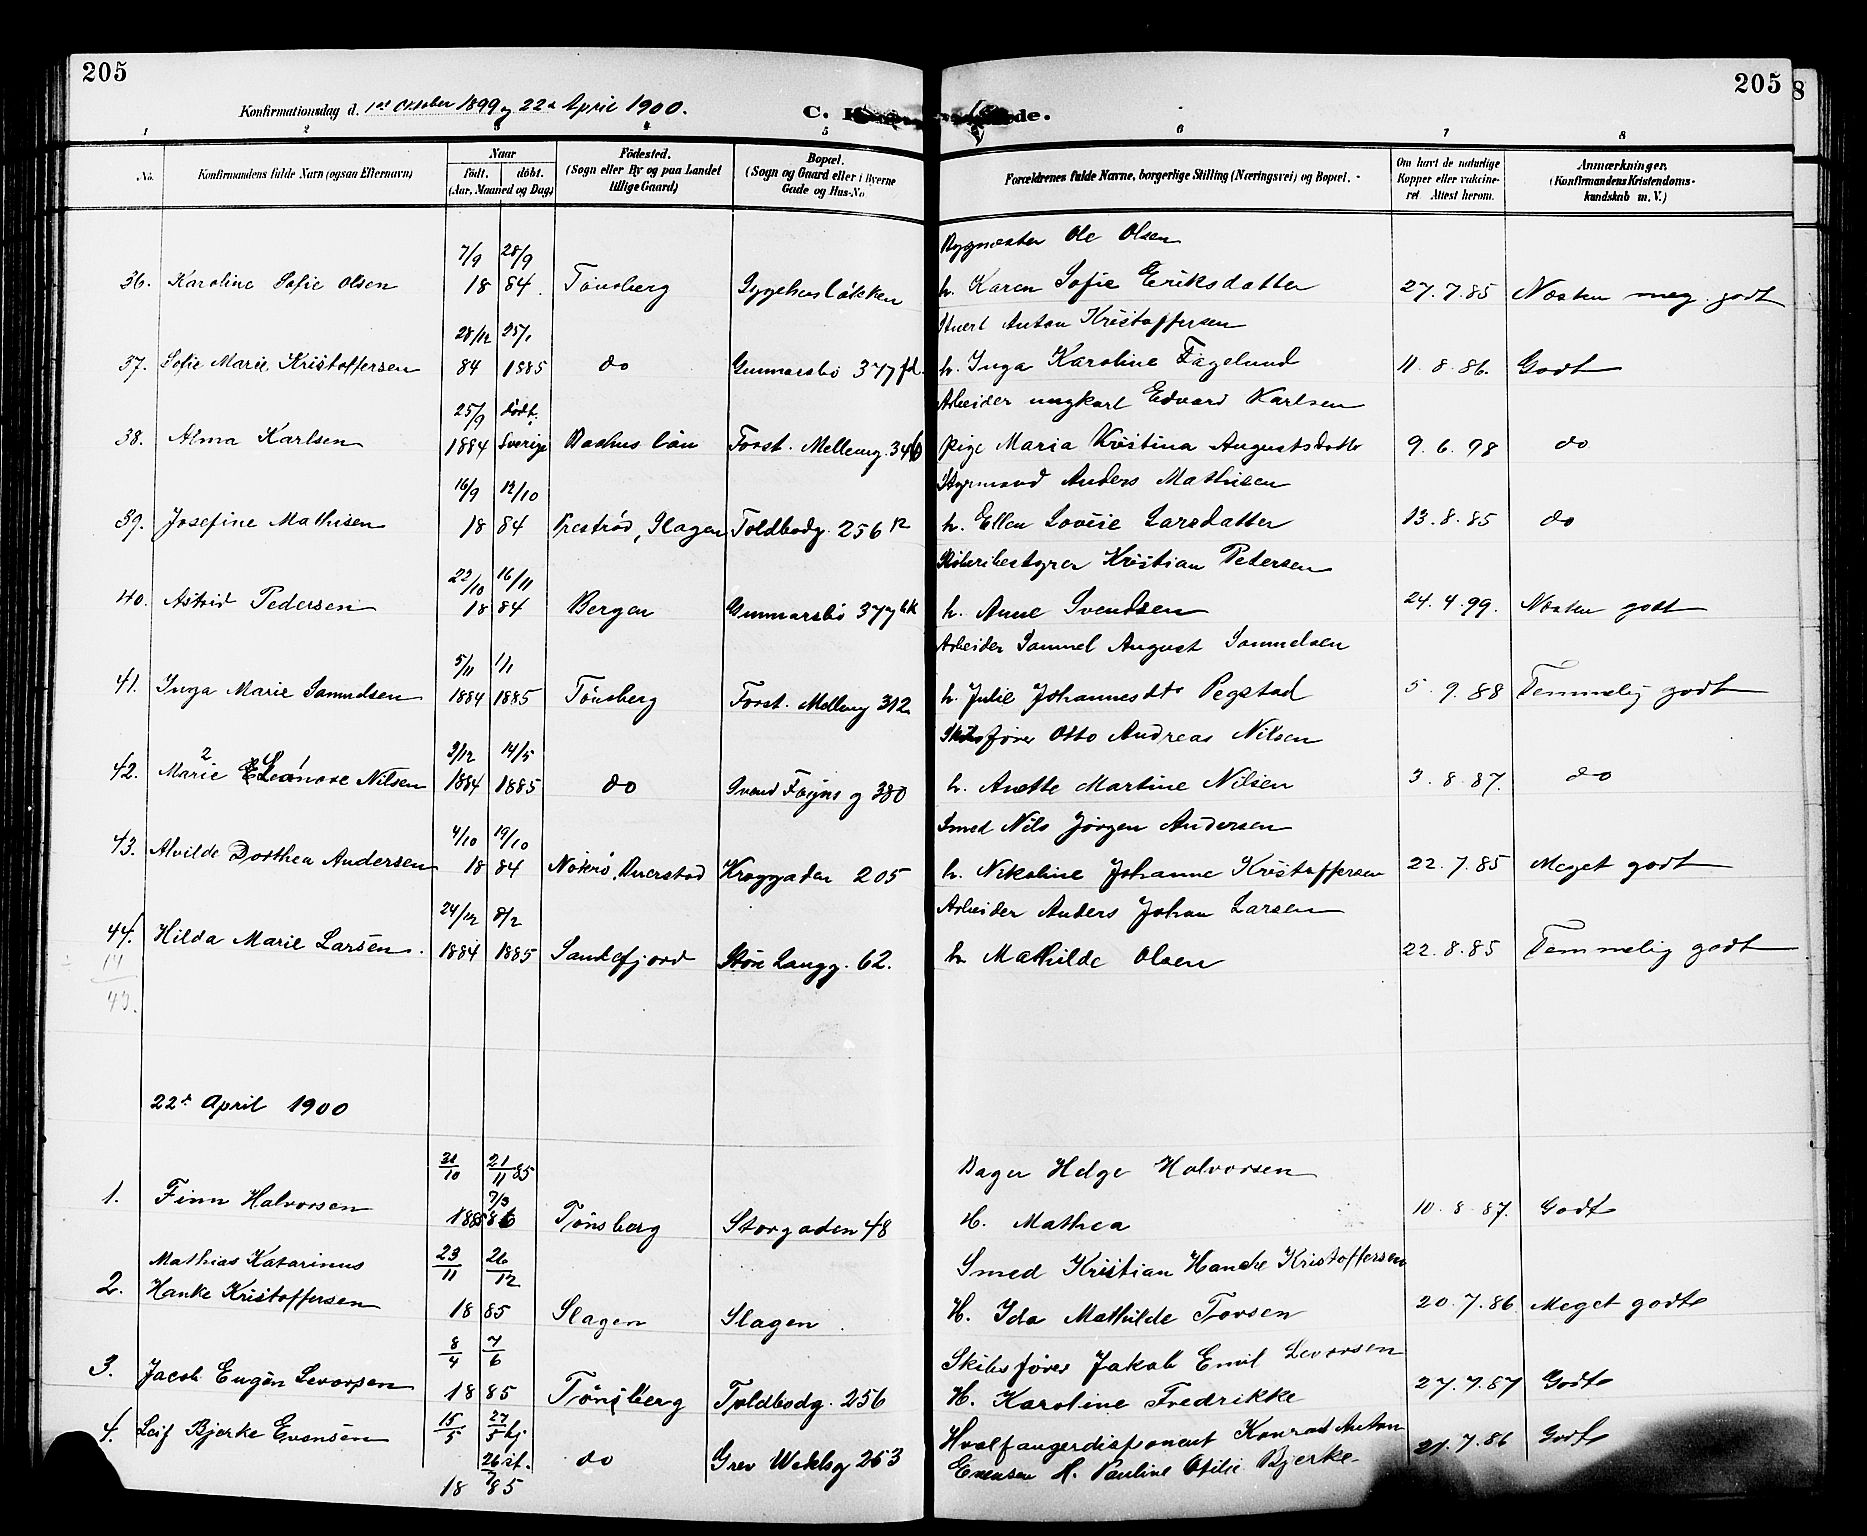 205
205
8
Konfirmationsdag d. 1st October 1899 og 22d April 1900.
C. K de.
1 2 3 4 5 6 7 8
No. Konfirmandens fulde Navn (ogsaa Efternavn) Naar Födt. döbt. (Aar, Maaned og Dag) Födested. (Sogn eller By og paa Landet tillige Gaard) Bopæl. (Sogn og Gaard eller i Byerne Gade og Hus-No. Forældrenes fulde Navne, borgerlige Stilling (Næringsvei) og Bopæl. Om havt de naturlige Kopper eller vaccineret Attest herom. Anmærkninger. (Konfirmandens Kristendomskundskab m. V.)
7/9 28/9 Ole Olsen
36. Karoline Sofie Olsen 18 84. Tönsberg Sygehuslökken h. Karen Sofie Eriksdatter 27.7.85 Næsten meg. godt
28/12 25/1 Stuert Anton Kristoffersen
37. Sofie Marie Kristoffersen 84 1885 do Gunnarsbö 377 fd. h. Inga Karoline Fagelund 11.8.86. Godt
25/9 dödt. Arbeider ungkarl Edvard Karlsen
38. Alma Karlsen 1884 Sverige län Forst. Melleng. 346 pige Maria Kristina Augustsdotter 9.6.98 do
16/9 12/10 Styrmand Anders Mathisen
39. Josefine Mathisen 18 84 Preströd, Slagen Toldbodg. 256 h. Ellen Lovise Larsdatter 13.8.85 do
22/10 16/11 Kristian Pedersen
40. Astrid Pedersen 18 84 Bergen Gunnarsbö 377 h. Anne Svendsen 24.4.99. Næsten godt
5/11 1/1 Arbeider Samuel August Samuelsen
41. Inga Marie Samuelsen 1884 1885 Tönsberg Forst. Melleng 312 h. Julie Johannesdtr Pegstad 5.9.88 Temmelig godt
2/12 14/5 Skibsfører Otto Andreas Nilsen
42. Marie Eleonore Nilsen 1884 1885 do Svend Foyns g 380 h. Anette Martine Nilsen 3.8.87. do
4/10 19/10 Smed Nils Jörgen Andersen
43. Alvilde Dorthea Andersen 18 84 Kroggaden 205 h. Nikoline Johanne Kristoffersen 22.7.85 Meget godt
24/12 8/2 Arbeider Anders Johan Larsen
44. Hilda Marie Larsen. 1884 1885 Sandefjord Stor Langg. 62. h. Mathilde Olsen 22.8.85 Temmelig godt
43.
22d April 1900
31/10 21/11 85 Bager Helge Halvorsen
1. Finn Halvorsen 1885 7/3 86 Tönsberg Storgaden 48 H. Mathea 10.8.87. Godt
Mathias Katarinus 23/11 26/12 Smed Kristian Hancke Kristoffersen
2. Hanke Kristoffersen 18 85 Slagen Slagen. H. Ida Mathilde Torsen 20.7.86 Meget godt
8/4 7/6 Skibsfører Jakob Emil Levorsen
3. Jacob Eugén Levorsen 18 85 Tönsberg Toldbodg. 256 H. Karoline Fredrikke 27.7.87 Godt
15/5 27/5 hj. Hvalfangerdisponent Konrad Anton
4. Leif Bjerke Evensen 26/7 st. do Grev Wedelsg 263 Evensen H. Pauline Otilie Bjerke 21.7.86 Godt
18 85